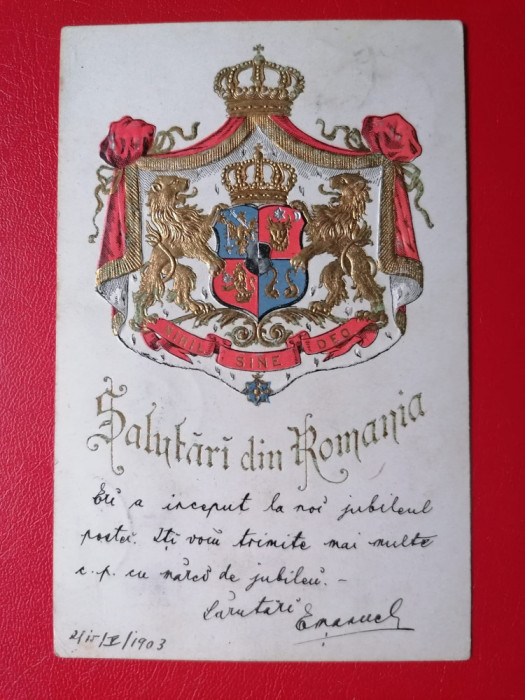 NIHIL SINE DEO
Salutări din Romania
Eri a inceput la noi jubileul
poștei. Iți voiu trimite mai multe
c. p. cu mărci de jubileu. –
Sărutări
Emanuel
2/15/V/1903